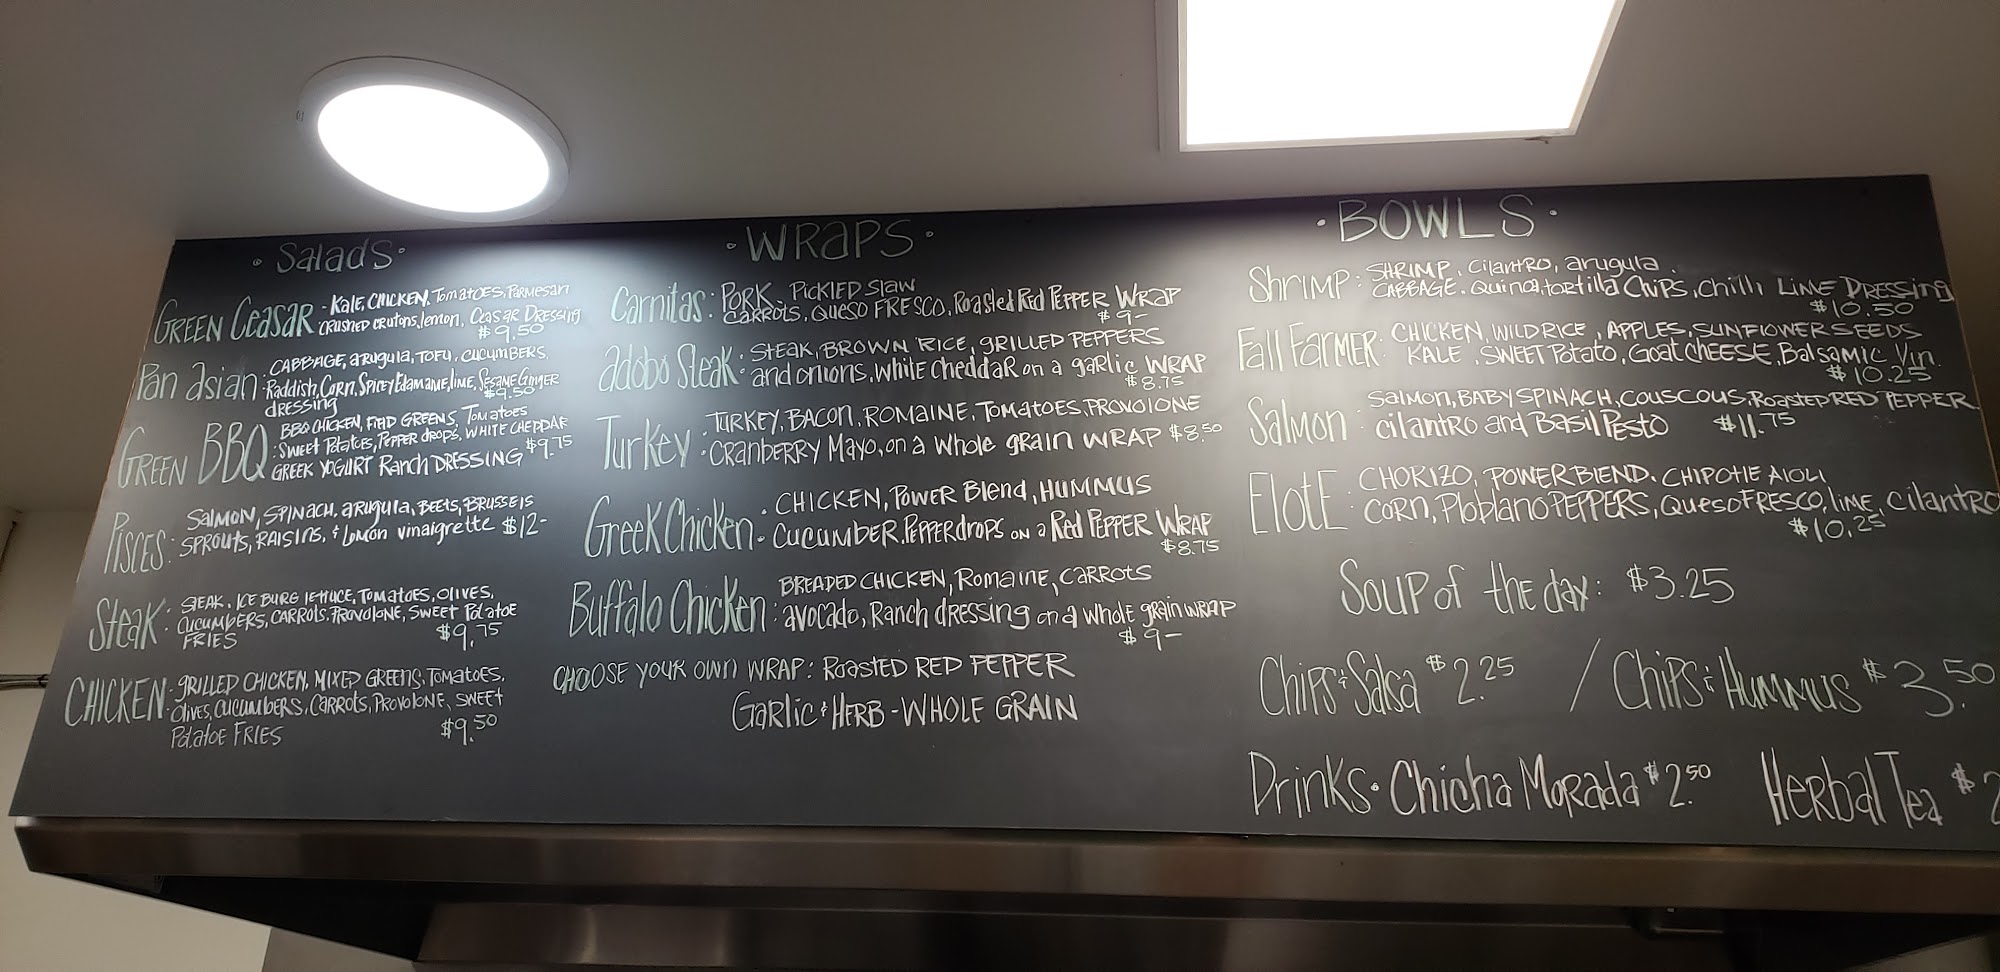 • Salads •
GREEN Ceasar - Kale, CHICKEN, TOMATOES, PARMESAN
CRUSHED CRUTONS, lemon, Ceasar DRESSING
$9.50
Pan asian: CABBAGE, arugula, TOFU, CUCUMBERS,
Raddish, Corn, Spicy Edamame, lime, SESAME GINGER
$9.50
dressing
GREEN BBQ: BBQ CHICKEN, FIELD GREENS, Tomatoes
Sweet Potatoes, PEPPER drops, WHITE CHEDDAR
GREEK YOGURT Ranch DRESSING $9.75
PISCES: SALMON, SPINACH, arugula, BEETS, BRUSSELS
SPROUTS, RAISINS, & Lemon vinaigrette $12-
Steak: STEAK, ICE BURG lettuce, TOMATOES, OLIVES,
CUCUMBERS, CARROTS, PROVOLONE, SWEET POTATOE
FRIES $9.75
CHICKEN: GRILLED CHICKEN, MIXED GREENS, TOMATOES,
Olives, CUCUMBERS, CARROTS, PROVOLONE, SWEET
POTATOE FRIES $9.50
• WRAPS •
Carnitas: PORK, PICKLED Slaw
CARROTS, QUESO FRESCO, Roasted Red PEPPER WRAP
$9-
adobo Steak: STEAK, BROWN RICE, GRILLED PEPPERS
and onions, white cheddar on a garlic WRAP
$8.75
Turkey: TURKEY, BACON, ROMAINE, TOMATOES, PROVOLONE
CRANBERRY Mayo, on a whole grain WRAP $8.50
Greek Chicken: CHICKEN, POWER Blend, HUMMUS
CUCUMBER, PEPPERdrops on a Red PEPPER WRAP
$8.75
Buffalo Chicken: BREADED CHICKEN, Romaine, CARROTS
avocado, Ranch dressing on a whole grain WRAP
$9-
CHOOSE YOUR OWN WRAP: ROASTED RED PEPPER
GARLIC & HERB - WHOLE GRAIN
• BOWLS •
Shrimp: SHRIMP, Cilantro, arugula,
CABBAGE, Quinoa, tortilla Chips, Chilli LIME DRESSING
$10.50
Fall Farmer: CHICKEN, WILD RICE, APPLES, SUNFLOWER SEEDS
KALE, SWEET Potato, Goat CHEESE, Balsamic Vin.
$10.25
Salmon: Salmon, BABY SPINACH, COUSCOUS, ROASTED RED PEPPER,
cilantro and Basil Pesto $11.75
Elote: CHORIZO, POWER BLEND, CHIPOTLE AIOLI
CORN, Ploblano PEPPERS, Queso FRESCO, lime, Cilantro
$10.25
Soup of the day: $3.25
Chips & Salsa $2.25 / Chips & Hummus $3.50
Drinks • Chicha Morada $2.50 Herbal Tea $2